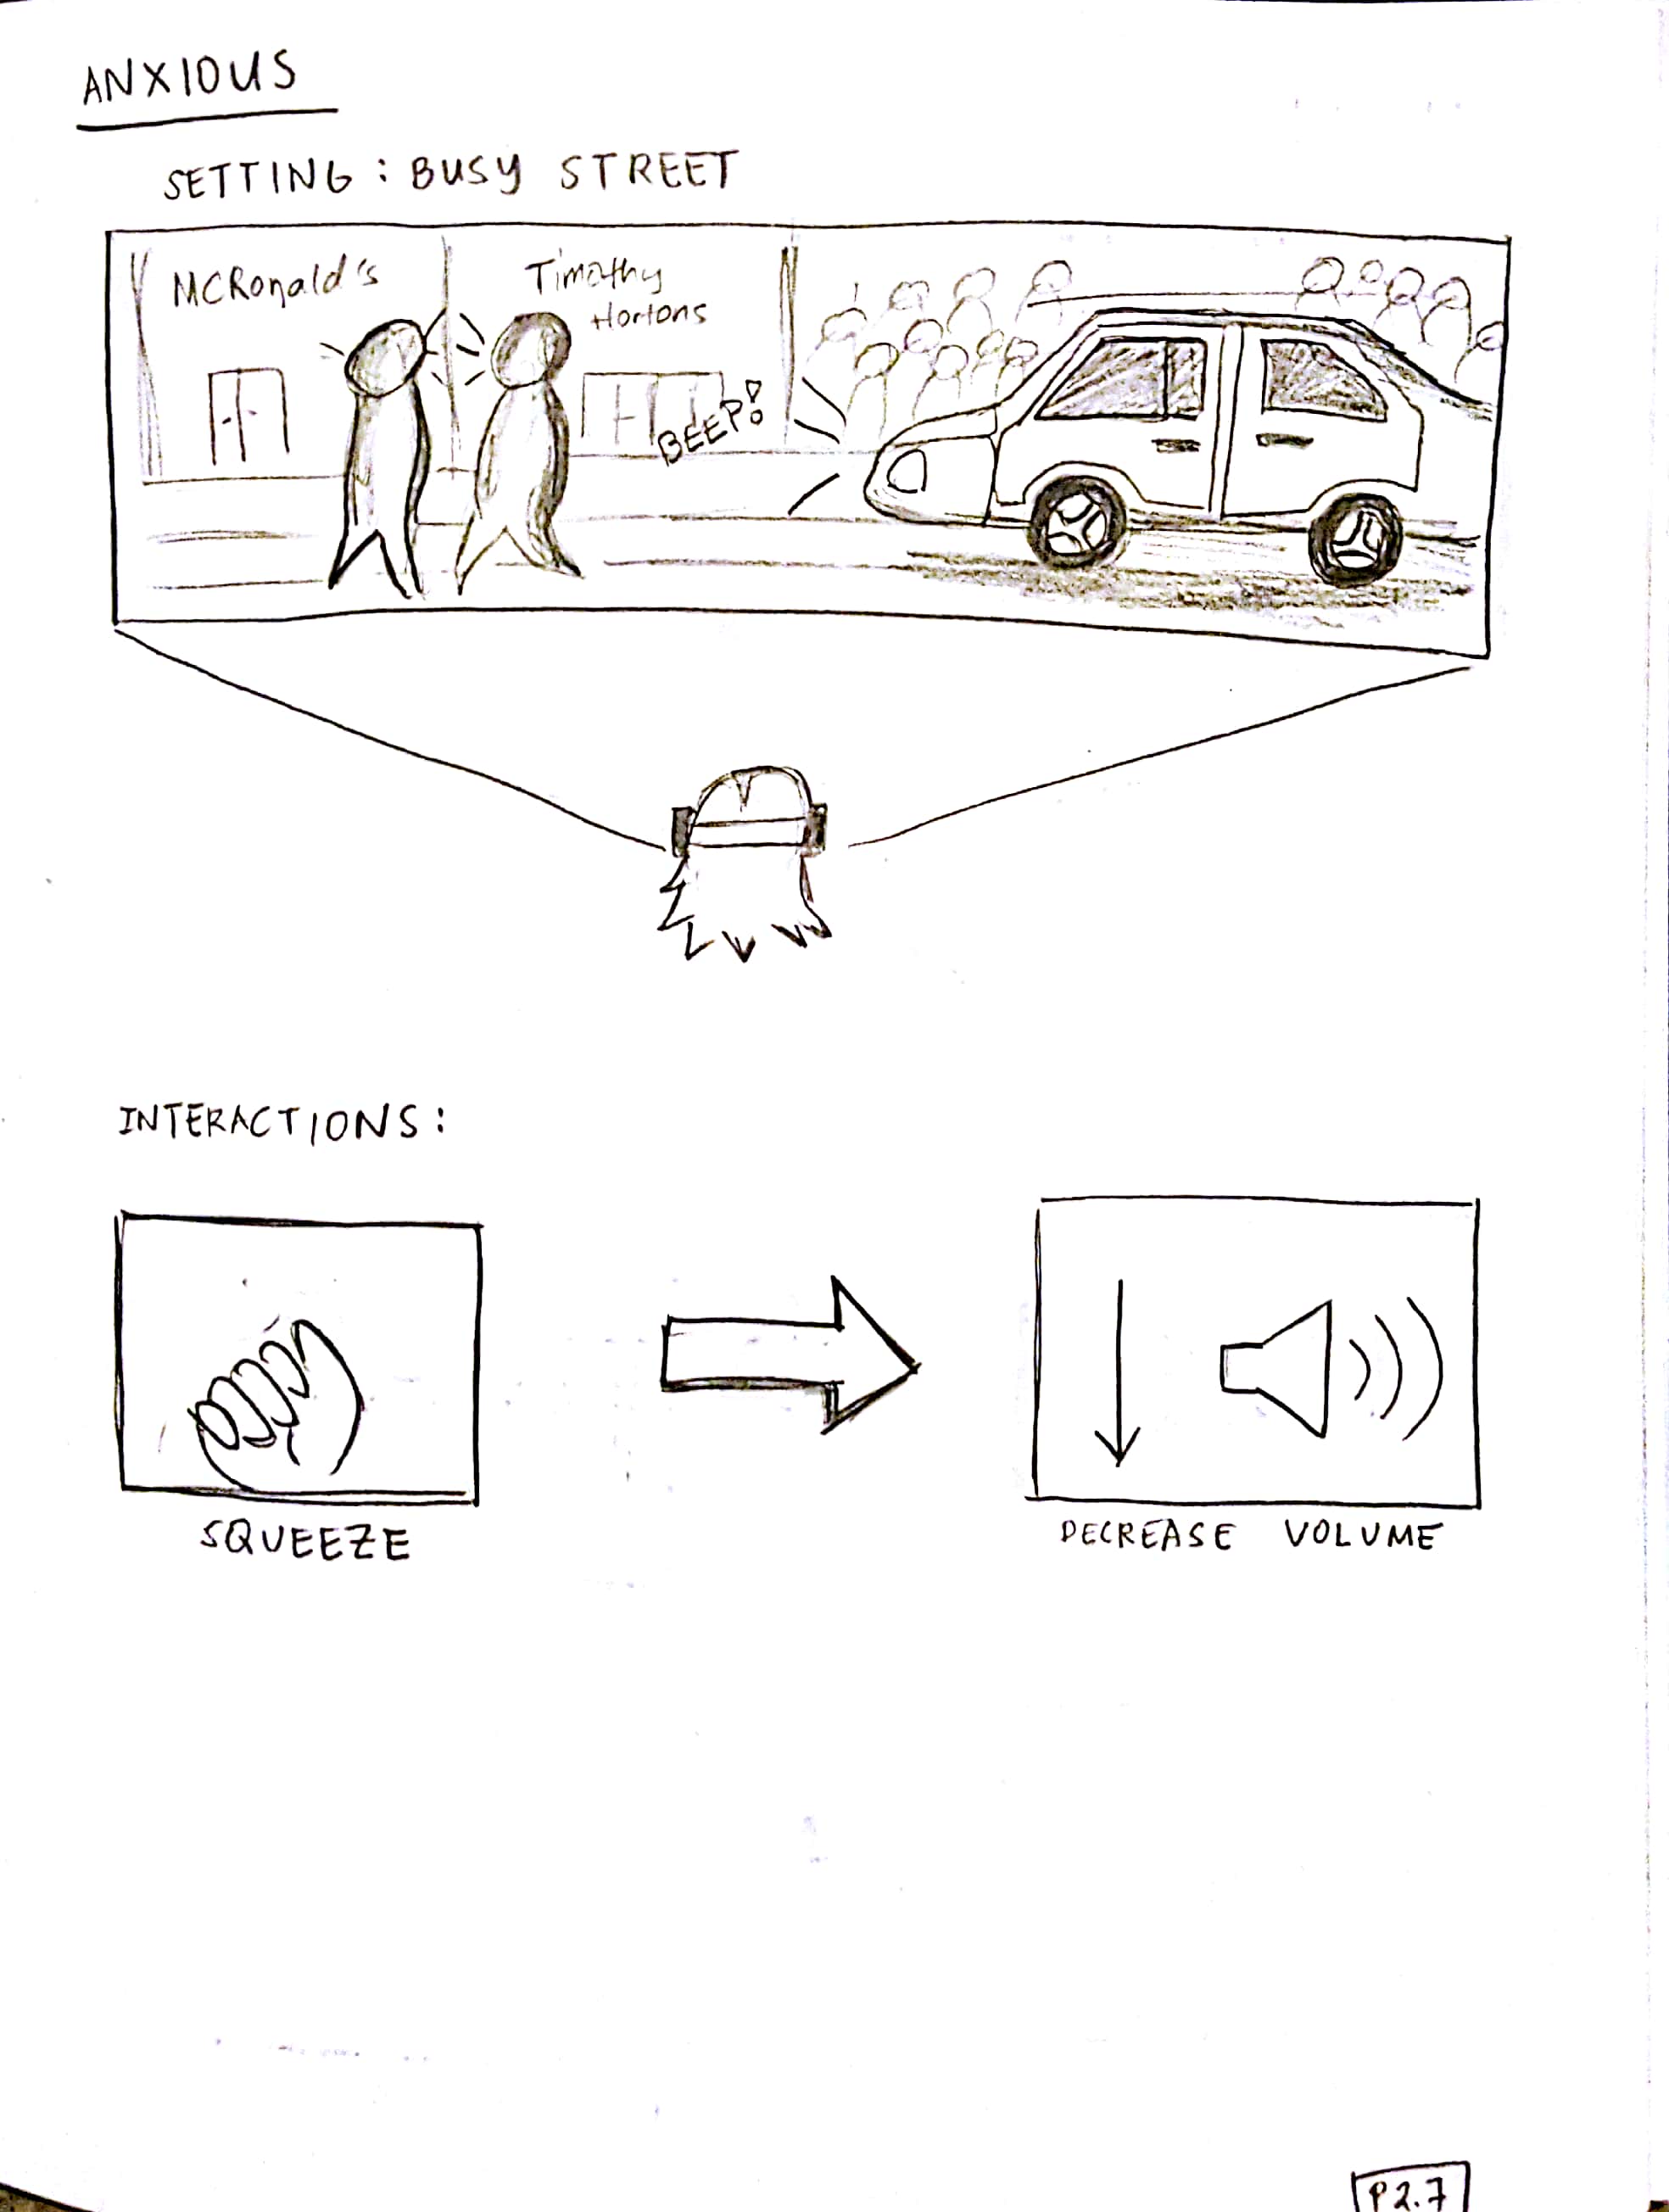 ANXIOUS
SETTING: BUSY STREET
MCRonald's
Timothy
Hortons
BEEP!
INTERACTIONS:
SQUEEZE
DECREASE VOLUME
P2.7